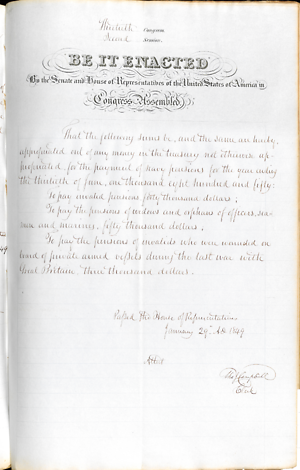 Thirtieth Congress
Second Session
BE IT ENACTED
By the Senate and House of Representatives of the United States of America in
Congress Assembled
That the following sums be, and the same are hereby,
appropriated out of any money in the treasury not otherwise ap-
propriated, for the payment of navy pensions for the year ending
the thirtieth of June, one thousand eight hundred and fifty:
To pay invalid pensions forty thousand dollars;
To pay the pensions of widows and orphans of officers, sea-
men and marines, fifty thousand dollars;
To pay the pensions of invalids who were wounded on
board of private armed vessels during the last war with
Great Britain three thousand dollars.
Passed the House of Representatives
January 29th AD 1849
Attest
Tho J Campbell
Clerk